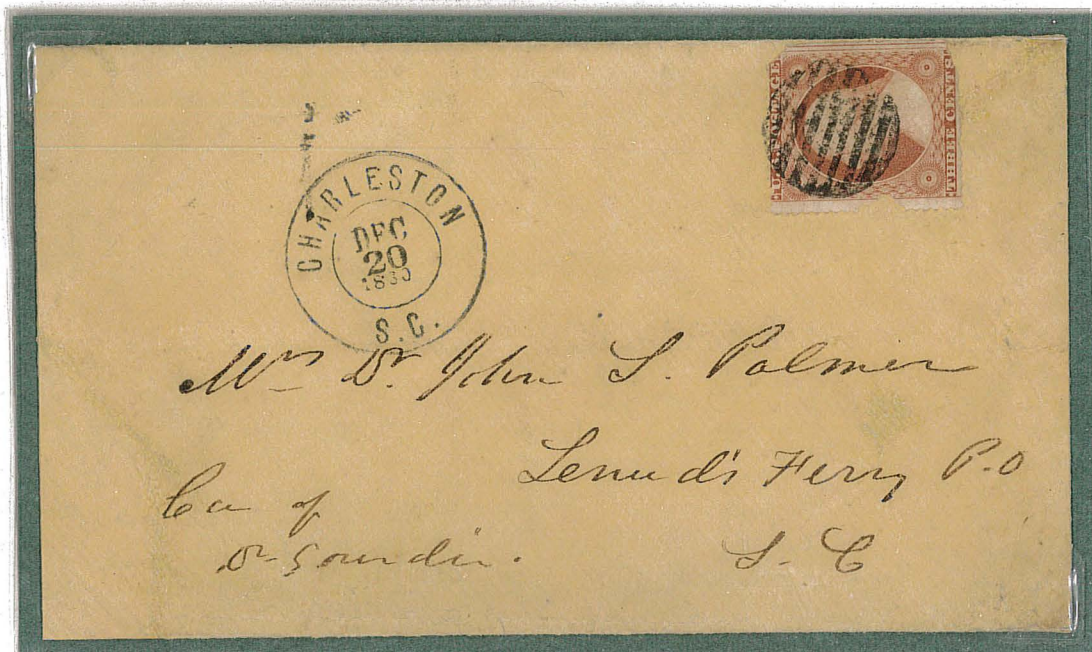 U.S. POSTAGE
THREE CENTS
CHARLESTON
DEC
20
1860
S.C.
Mrs Dr. John S. Palmer
Lenud's Ferry P.O
S. C
Ca of
Dr Gourdin.